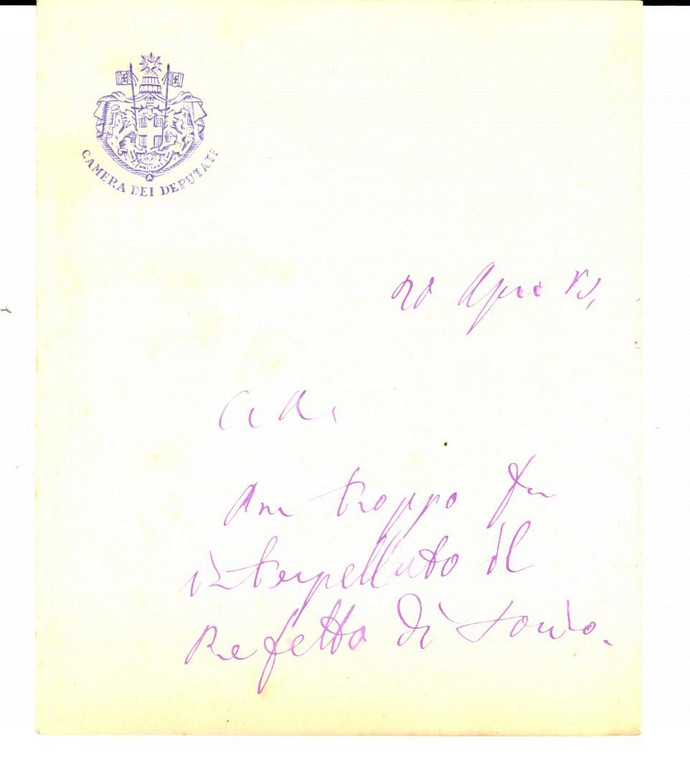 CAMERA DEI DEPUTATI
20 Apre
C. A.
troppo fu
interpellato il
Prefetto di